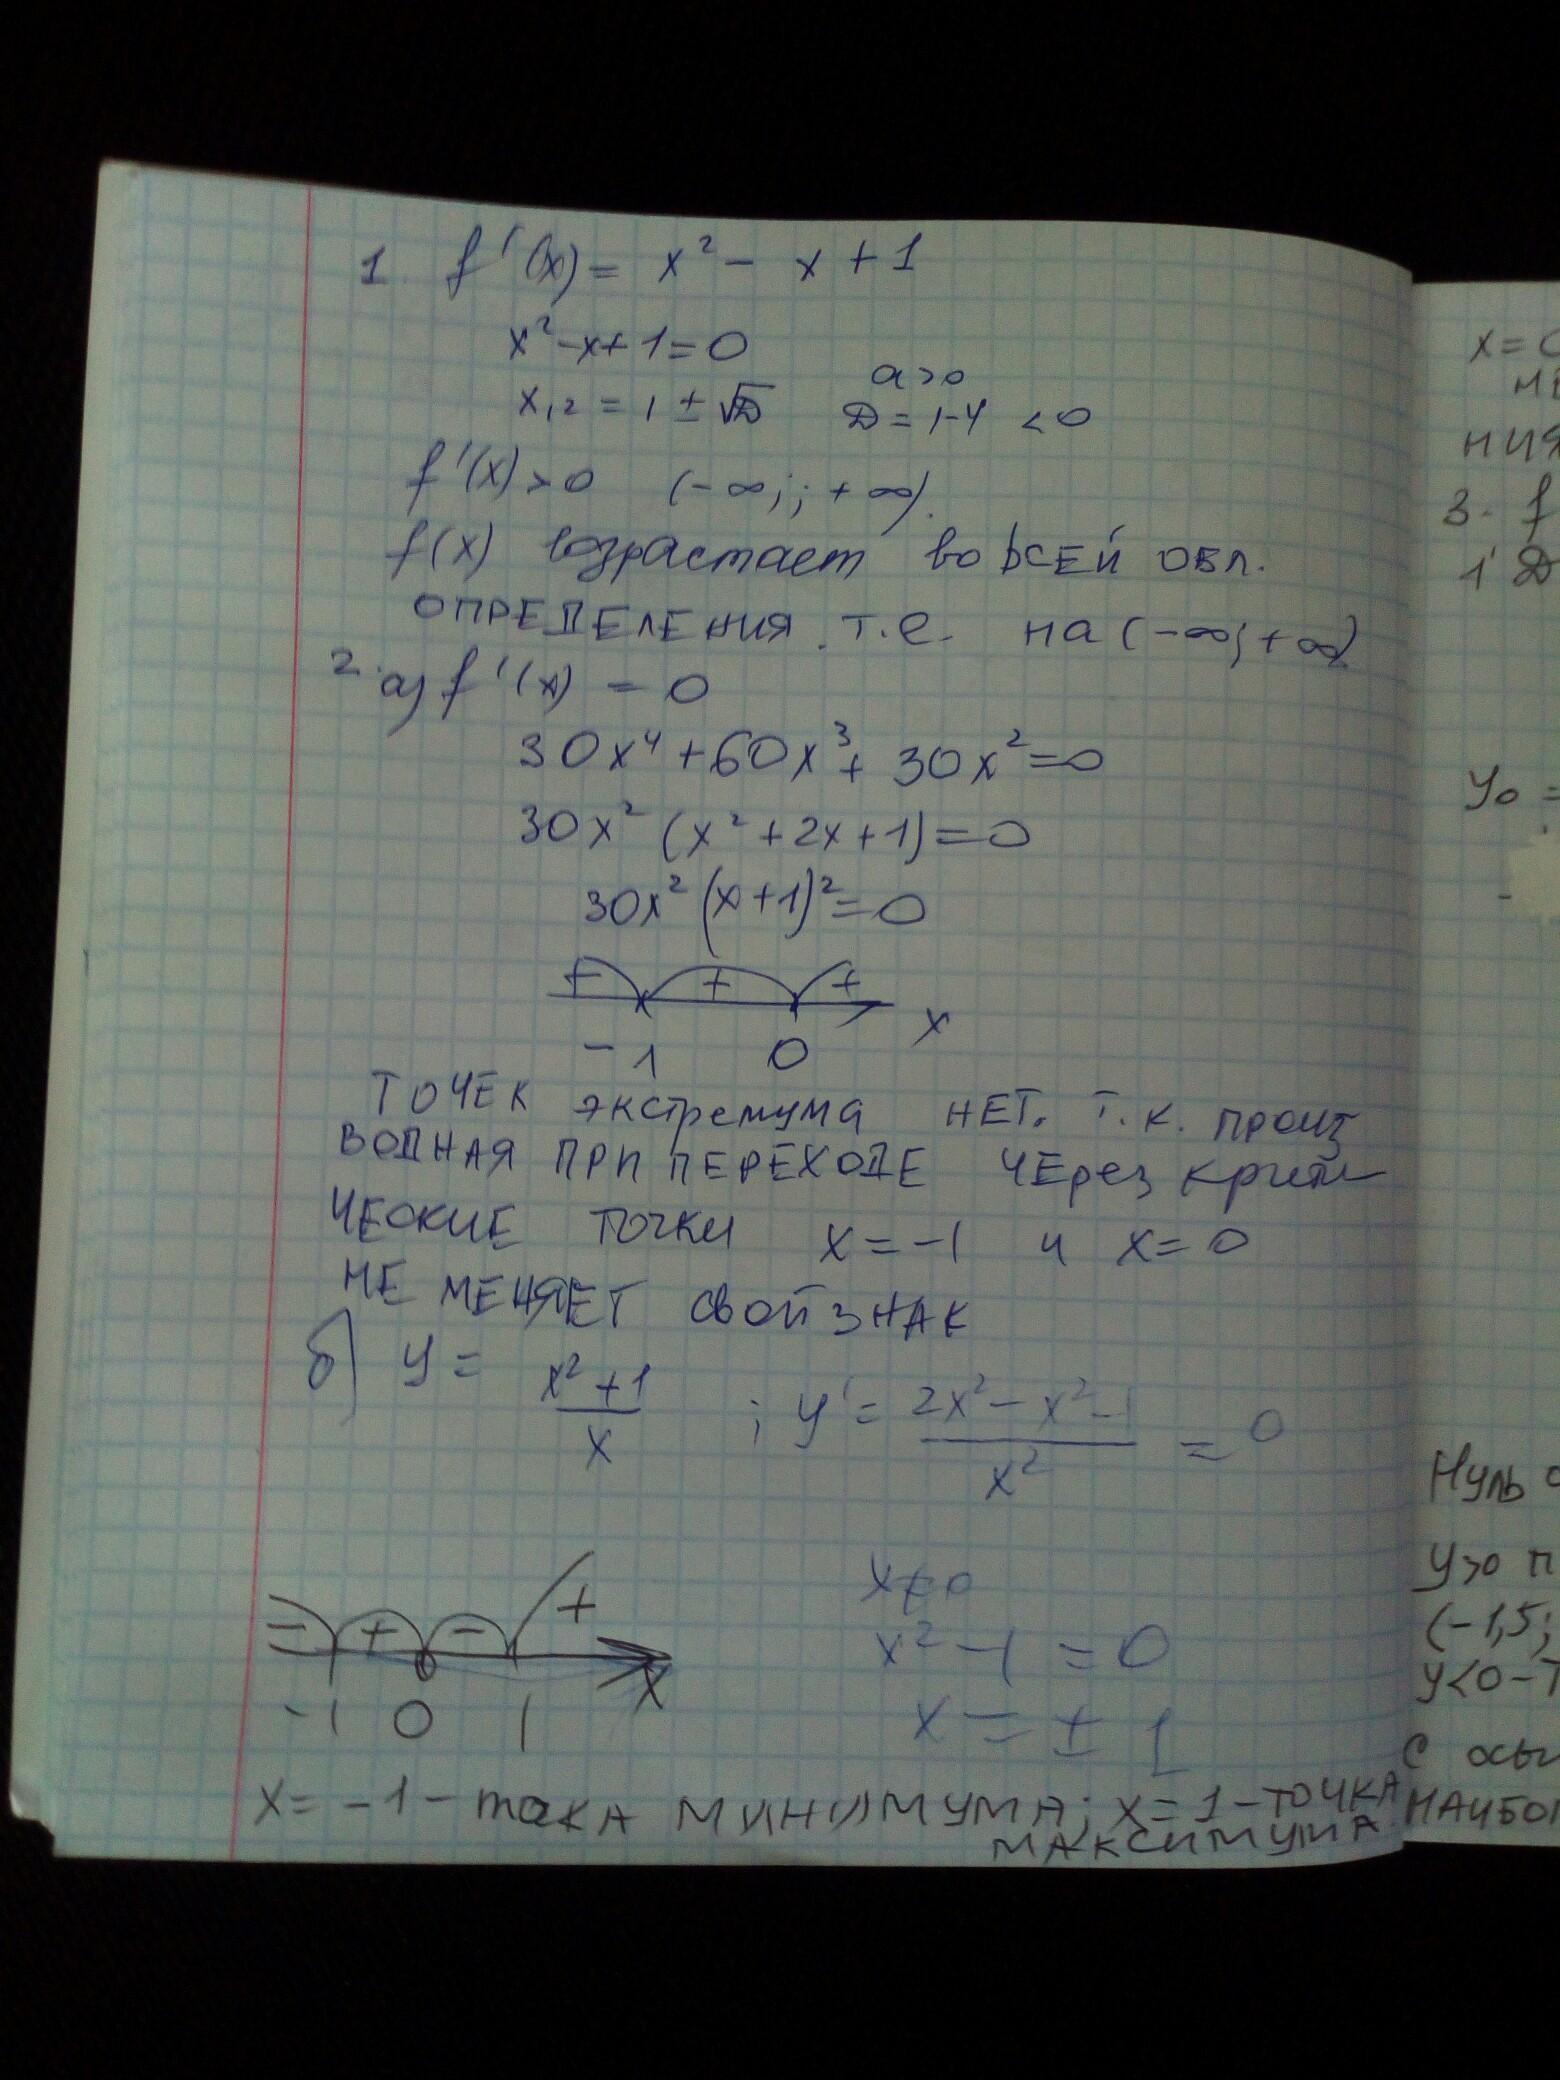 1. f'(x) = x² - x + 1
x² - x + 1 = 0
x₁,₂ = 1 ± √D a > 0 D = 1-4 < 0
f'(x) > 0 (-∞; ; +∞).
f(x) возрастает во всей обл.
определения. т.е. на (-∞; +∞)
2. а) f'(x) = 0
30x⁴ + 60x³ + 30x² = 0
30x² (x² + 2x + 1) = 0
30x² (x + 1)² = 0
+ + +
-1 0 x
точек экстремума нет. т.к. произ
водная при переходе через крити
ческие точки x = -1 и x = 0
не меняет свой знак
б) y = (x² + 1)/x ; y' = (2x² - x² - 1)/x² = 0
x ≠ 0
- + - +
x² - 1 = 0
-1 0 1 x
x = ± 1
x = -1 - точка минимума; x = 1 - точка
максимума.
x = 0
ния
3. f
1 D
y₀ =
Нуль
y > 0 п
(-1,5;
y < 0 - 
с осы
наибол